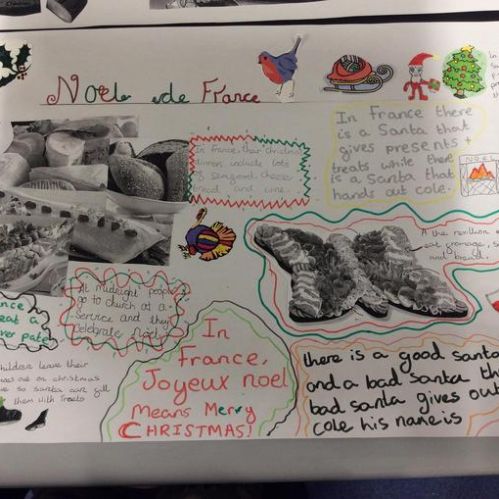 Noel de France
In France, their christmas
dinners include lots
of seafood, cheese
bread and wine.
In France there
is a Santa that
gives presents +
treats while there
is a Santa that
hands out cole.
NOEL
A the reveillon
eat fromage,
and bread.
At Midnight people
go to church at a
Service and they
celebrate noel
eat a
ver pate
children leave their
out on christmas
so santa can fill
them with treats
In
France,
Joyeux noel
Means Merry
CHRISTMAS!
there is a good santa
and a bad Santa the
bad santa gives out
cole his name is